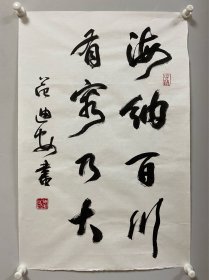 海纳百川
有容乃大
范迪安书